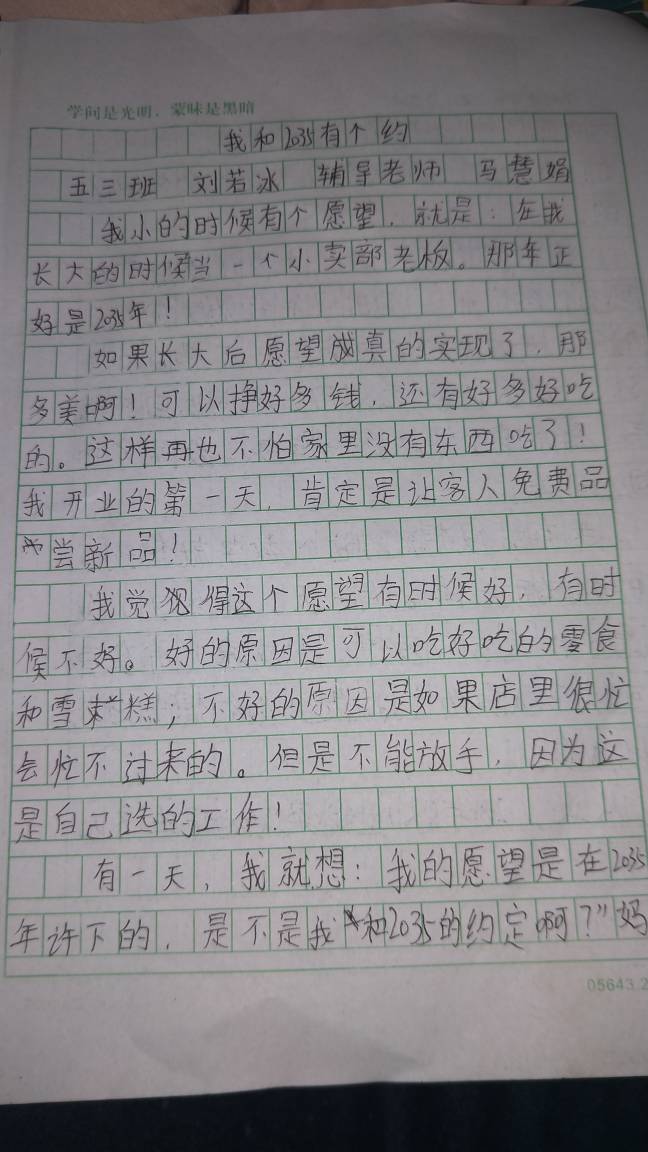 学问是光明，蒙昧是黑暗
我和2035有个约
五三班 刘若冰 辅导老师 马慧娟
我小的时候有个愿望，就是：在我
长大的时候当一个小卖部老板。那年正
好是2035年！
如果长大后愿望成真的实现了，那
多美啊！可以挣好多钱，还有好多好吃
的。这样再也不怕家里没有东西吃了！
我开业的第一天，肯定是让客人免费品
尝新品！
我觉得这个愿望有时候好，有时
候不好。好的原因是可以吃好吃的零食
和雪糕；不好的原因是如果店里很忙
会忙不过来的。但是不能放手，因为这
是自己选的工作！
有一天，我就想：我的愿望是在2035
年许下的，是不是我和2035的约定啊？”妈
05643.2